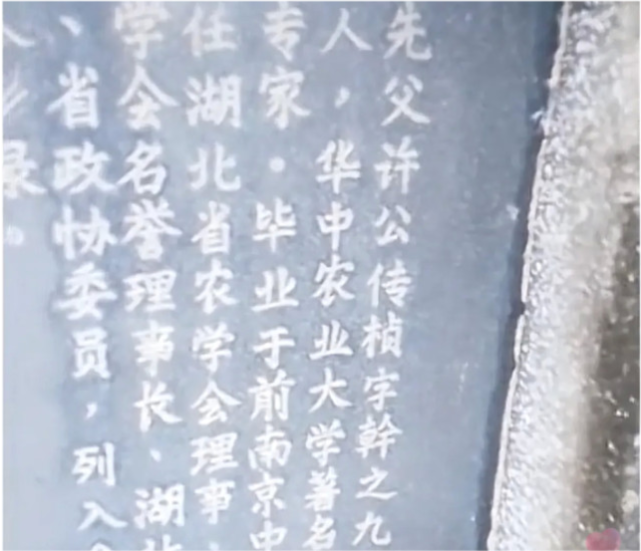 先父许公传桢字幹之九
人，华中农业大学著名
专家·毕业于前南京中
任湖北省农学会理事、
学会名誉理事长、湖北
、省政协委员，列入
人
录